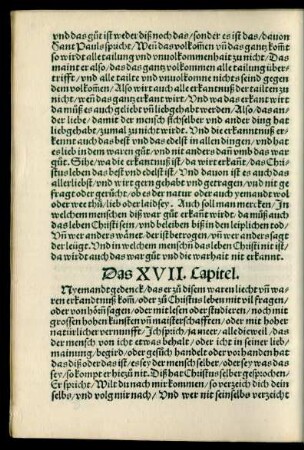 vnd das gůt ist weder diß noch das/sonder es ist das/dauon
Sant Pauls spricht/Weñ das volkom̃en vñ das gantz kom̃t
so wirdt alle tailung vnd vnuolkommenhait zu nicht/Das
maint er also/das das gantz volkommen alle tailung über-
trifft/vnd alle tailte vnd vnuolkomne nichts seind gegen
dem volkom̃en/Also wirt auch alle erkantnuß der tailten zu
nicht/wen̄ das gantz erkant wirt/Vnd wa das erkant wirt
da můß es auch geliebt vñ liebgehabt werden/Also/das an-
der liebe/damit der mensch sich selber vnd ander ding hat
liebgehabt/zumal zu nicht wirdt. Vnd die erkantnuß er-
kennt auch das best vnd das edelst in allen dingen/vnd hat
es lieb in dem waren gůt/vnd nit anders dañ vmb das war
gůt. Sihe/wa die erkantnuß ist/da wirt erkañt/das Chri-
stus leben das best vnd edelst ist/Vnd dauon ist es auch das
allerliebst/vnd wirt gern gehabt vnd getragen/vnd nit ge
fragt oder gerůcht/ob es der natur oder auch yemandt wol
oder wee thů/lieb oder laid sey. Auch soll man mercken/In
welchem menschen diß war gůt erkant wirdt/da můß auch
das leben Christi sein/vnd beleiben biß in den leiplichen tod/
Vñ wer anders wänet/der ist betrogen/vñ wer anders sagt
der leugt. Vnd in welchem menschñ das leben Christi nit ist/
da wirdt auch das war gůt vnd die warhait nit erkannt.
Das XVII. Capitel.
Nyemandt gedenck/das er zů disem waren liecht vñ wa-
ren erkandtnuß kom̃/oder zů Christus leben mit vil fragen/
oder von hörñ sagen/oder mit lesen oder studieren/noch mit
grossen hohen kunsten vñ maisterschafften/oder mit hoher
natürlicher vernunfft/Ich sprich/ia mer/alle dieweil/das
der mensch von icht etwas behalt/oder icht in seiner lieb/
mainung/begird/oder gesůch handelt oder vorhanden hat
das diß oder das ist/es sey der mensch selber/oder sey was das
sey/so kompt er hiezů nit. Diß hat Christus selber gesprochen
Er spricht/Wilt du nach mir kommen/so verzeich dich dein
selbs/vnd volg mir nach/Vnd wer nit sein selbs verzeicht